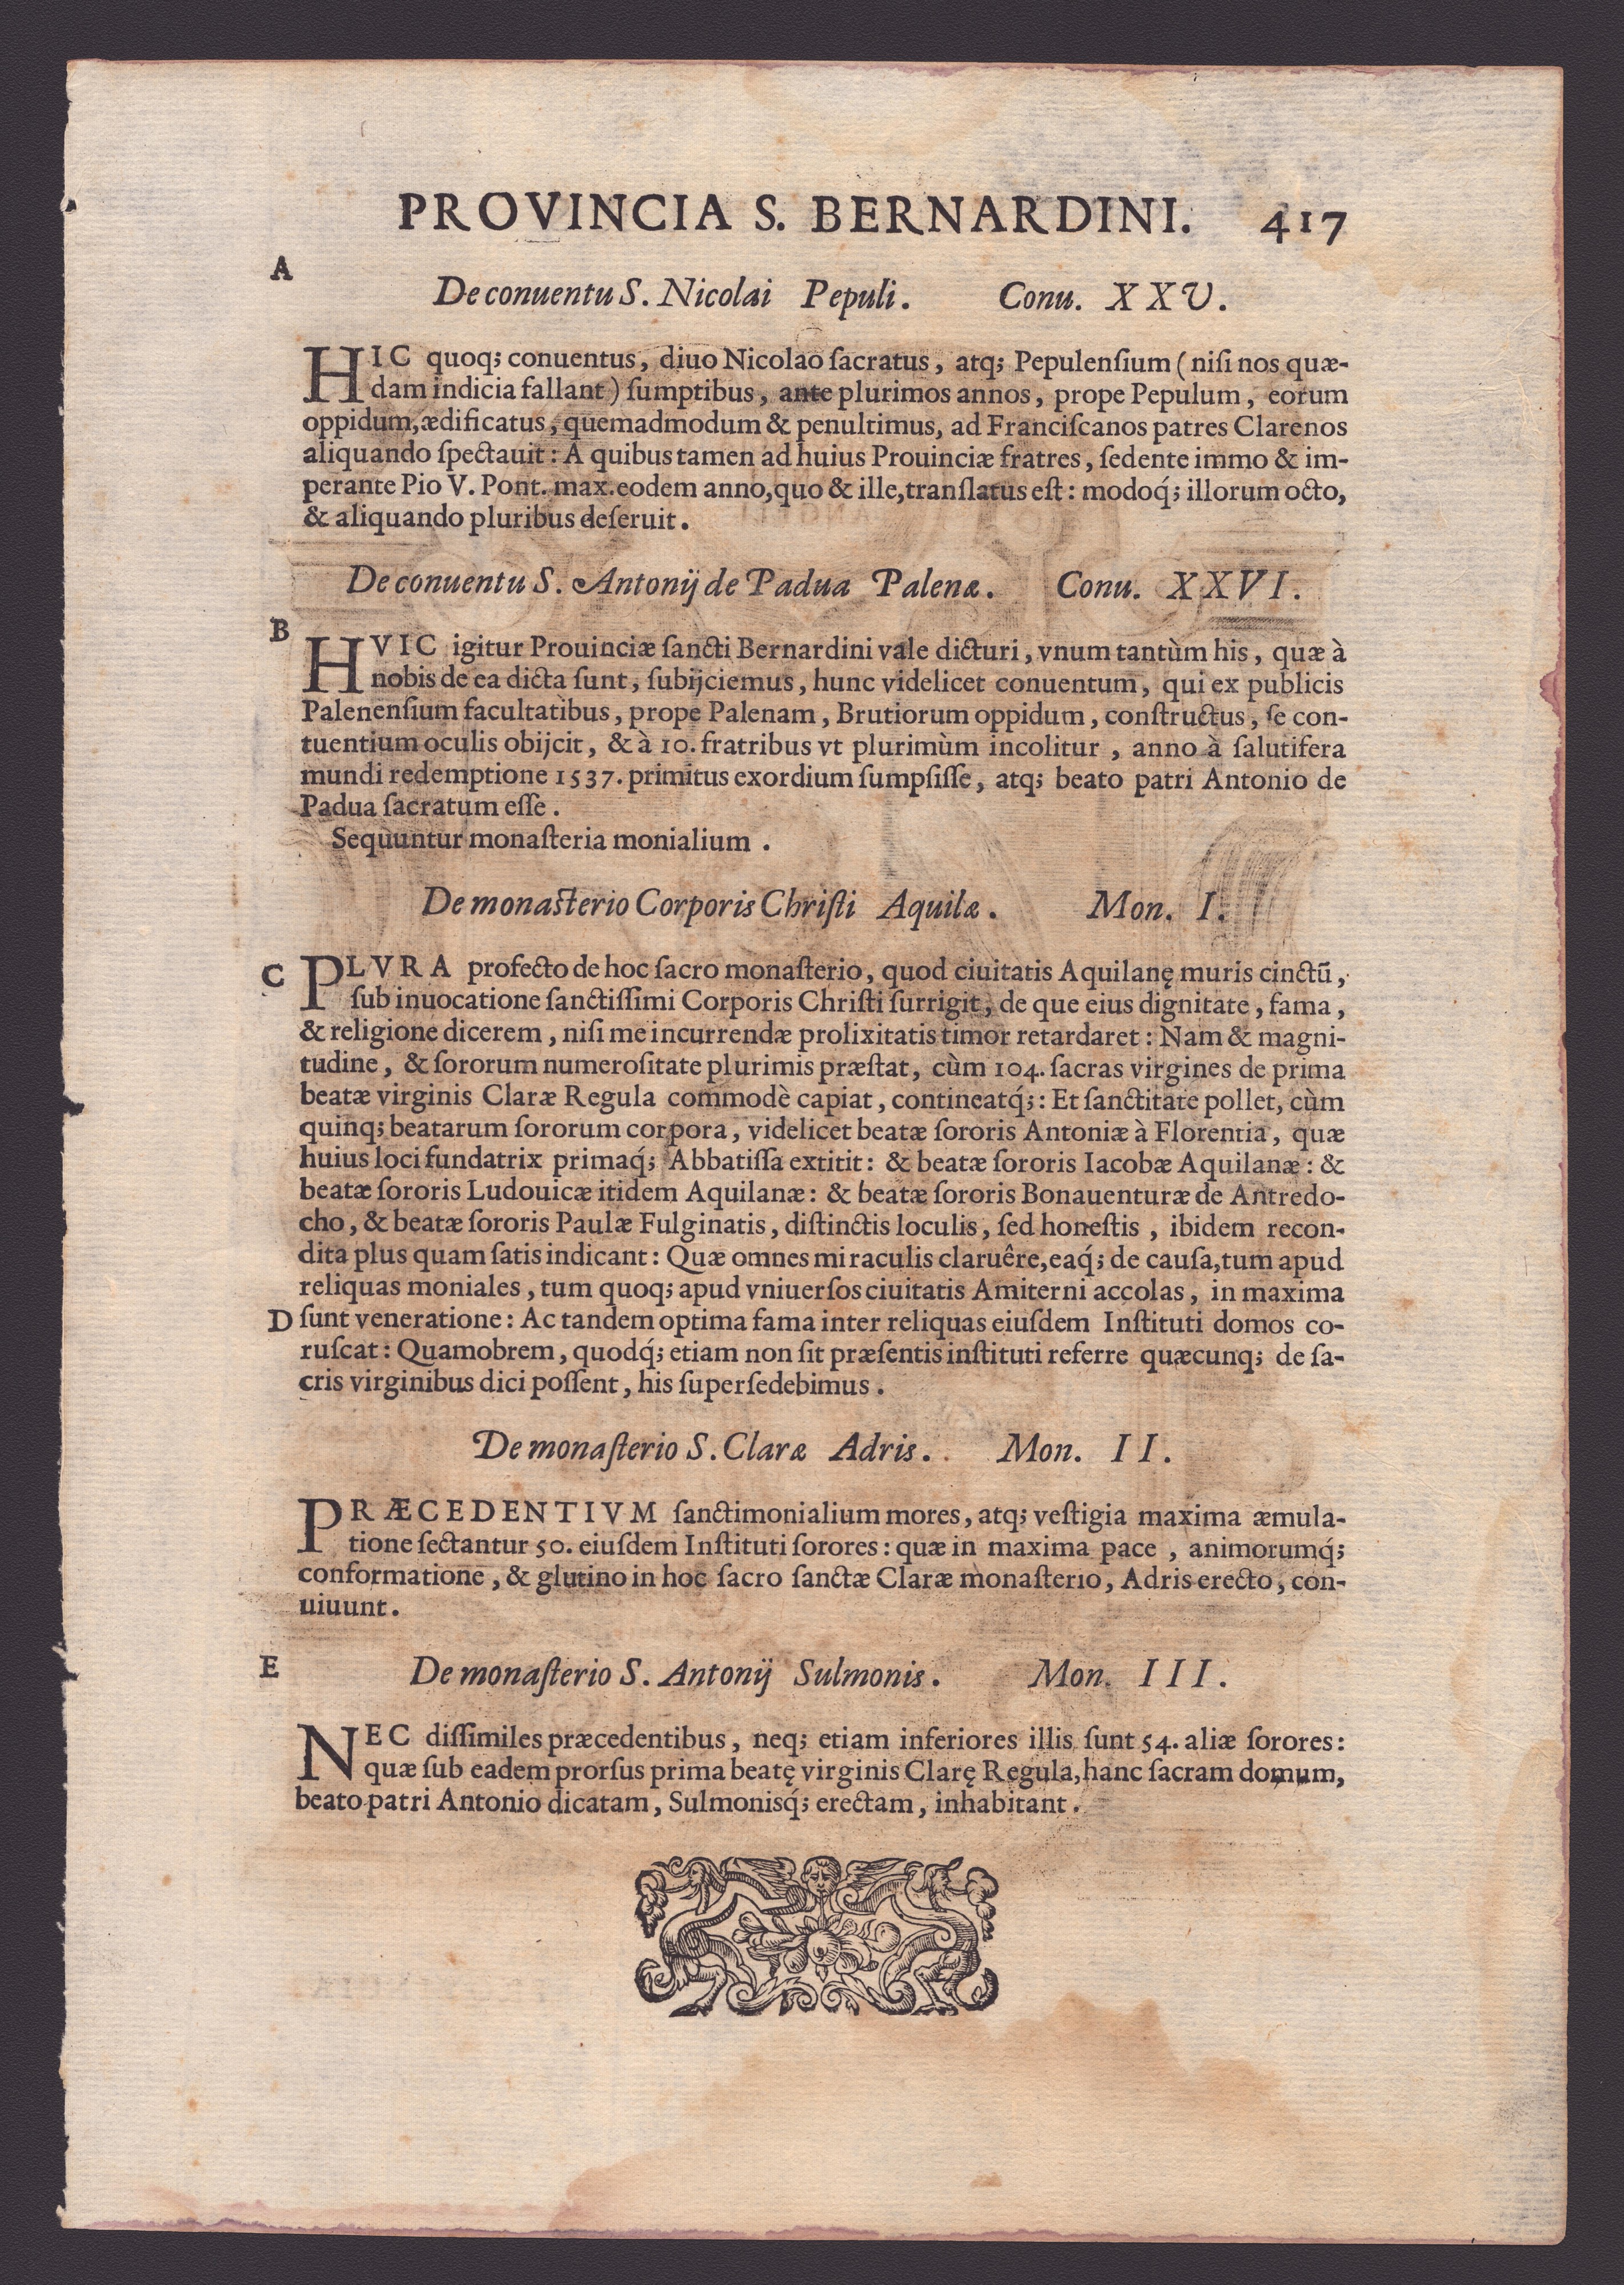 PROVINCIA S. BERNARDINI. 417
A
De conuentu S. Nicolai Pepuli. Conu. XXV.
HIC quoq; conuentus, diuo Nicolao ſacratus, atq; Pepulenſium (niſi nos quæ-
dam indicia fallant) ſumptibus, ante plurimos annos, prope Pepulum, eorum
oppidum, ædificatus, quemadmodum & penultimus, ad Franciſcanos patres Clarenos
aliquando ſpectauit: A quibus tamen ad huius Prouinciæ fratres, ſedente immo & im-
perante Pio V. Pont. max. eodem anno, quo & ille, tranſlatus eſt: modoq́; illorum octo,
& aliquando pluribus deſeruit.
De conuentu S. Antonij de Padua Palenæ. Conu. XXVI.
B
HVIC igitur Prouinciæ ſancti Bernardini vale dicturi, vnum tantùm his, quæ à
nobis de ea dicta ſunt, ſubijciemus, hunc videlicet conuentum, qui ex publicis
Palenenſium facultatibus, prope Palenam, Brutiorum oppidum, conſtructus, ſe con-
tuentium oculis obijcit, & à 10. fratribus vt plurimùm incolitur, anno à ſalutifera
mundi redemptione 1537. primitus exordium ſumpſiſſe, atq; beato patri Antonio de
Padua ſacratum eſſe.
Sequuntur monaſteria monialium.
De monaſterio Corporis Chriſti Aquilæ. Mon. I.
C PLVRA profecto de hoc ſacro monaſterio, quod ciuitatis Aquilanę muris cinctū,
ſub inuocatione ſanctiſſimi Corporis Chriſti ſurrigit, de que eius dignitate, fama,
& religione dicerem, niſi me incurrendæ prolixitatis timor retardaret: Nam & magni-
tudine, & ſororum numeroſitate plurimis præſtat, cùm 104. ſacras virgines de prima
beatæ virginis Claræ Regula commodè capiat, contineatq́;: Et ſanctitate pollet, cùm
quinq; beatarum ſororum corpora, videlicet beatæ ſororis Antoniæ à Florentia, quæ
huius loci fundatrix primaq́; Abbatiſſa extitit: & beatæ ſororis Iacobæ Aquilanæ: &
beatæ ſororis Ludouicæ itidem Aquilanæ: & beatæ ſororis Bonauenturæ de Antredo-
cho, & beatæ ſororis Paulæ Fulginatis, diſtinctis loculis, ſed honeſtis, ibidem recon-
dita plus quam ſatis indicant: Quæ omnes miraculis claruêre, eaq́; de cauſa, tum apud
reliquas moniales, tum quoq; apud vniuerſos ciuitatis Amiterni accolas, in maxima
D ſunt veneratione: Ac tandem optima fama inter reliquas eiuſdem Inſtituti domos co-
ruſcat: Quamobrem, quodq́; etiam non ſit præſentis inſtituti referre quæcunq; de ſa-
cris virginibus dici poſſent, his ſuperſedebimus.
De monaſterio S. Claræ Adris. Mon. II.
PRÆCEDENTIVM ſanctimonialium mores, atq; veſtigia maxima æmula-
tione ſectantur 50. eiuſdem Inſtituti ſorores: quæ in maxima pace, animorumq́;
conformatione, & glutino in hoc ſacro ſanctæ Claræ monaſterio, Adris erecto, con-
uiuunt.
E De monaſterio S. Antonij Sulmonis. Mon. III.
NEC diſſimiles præcedentibus, neq; etiam inferiores illis ſunt 54. aliæ ſorores:
quæ ſub eadem prorſus prima beatę virginis Clarę Regula, hanc ſacram domum,
beato patri Antonio dicatam, Sulmonisq́; erectam, inhabitant.